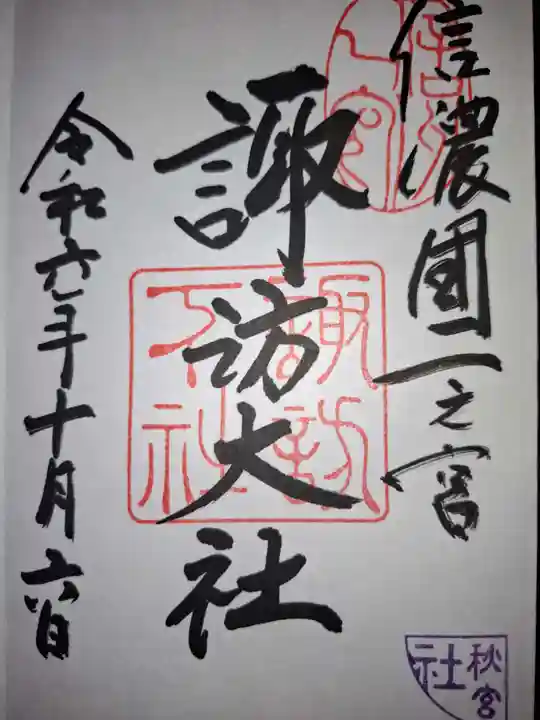 信濃國一之宮
諏訪大社
令和六年十月六日
諏訪
下社
秋宮
社